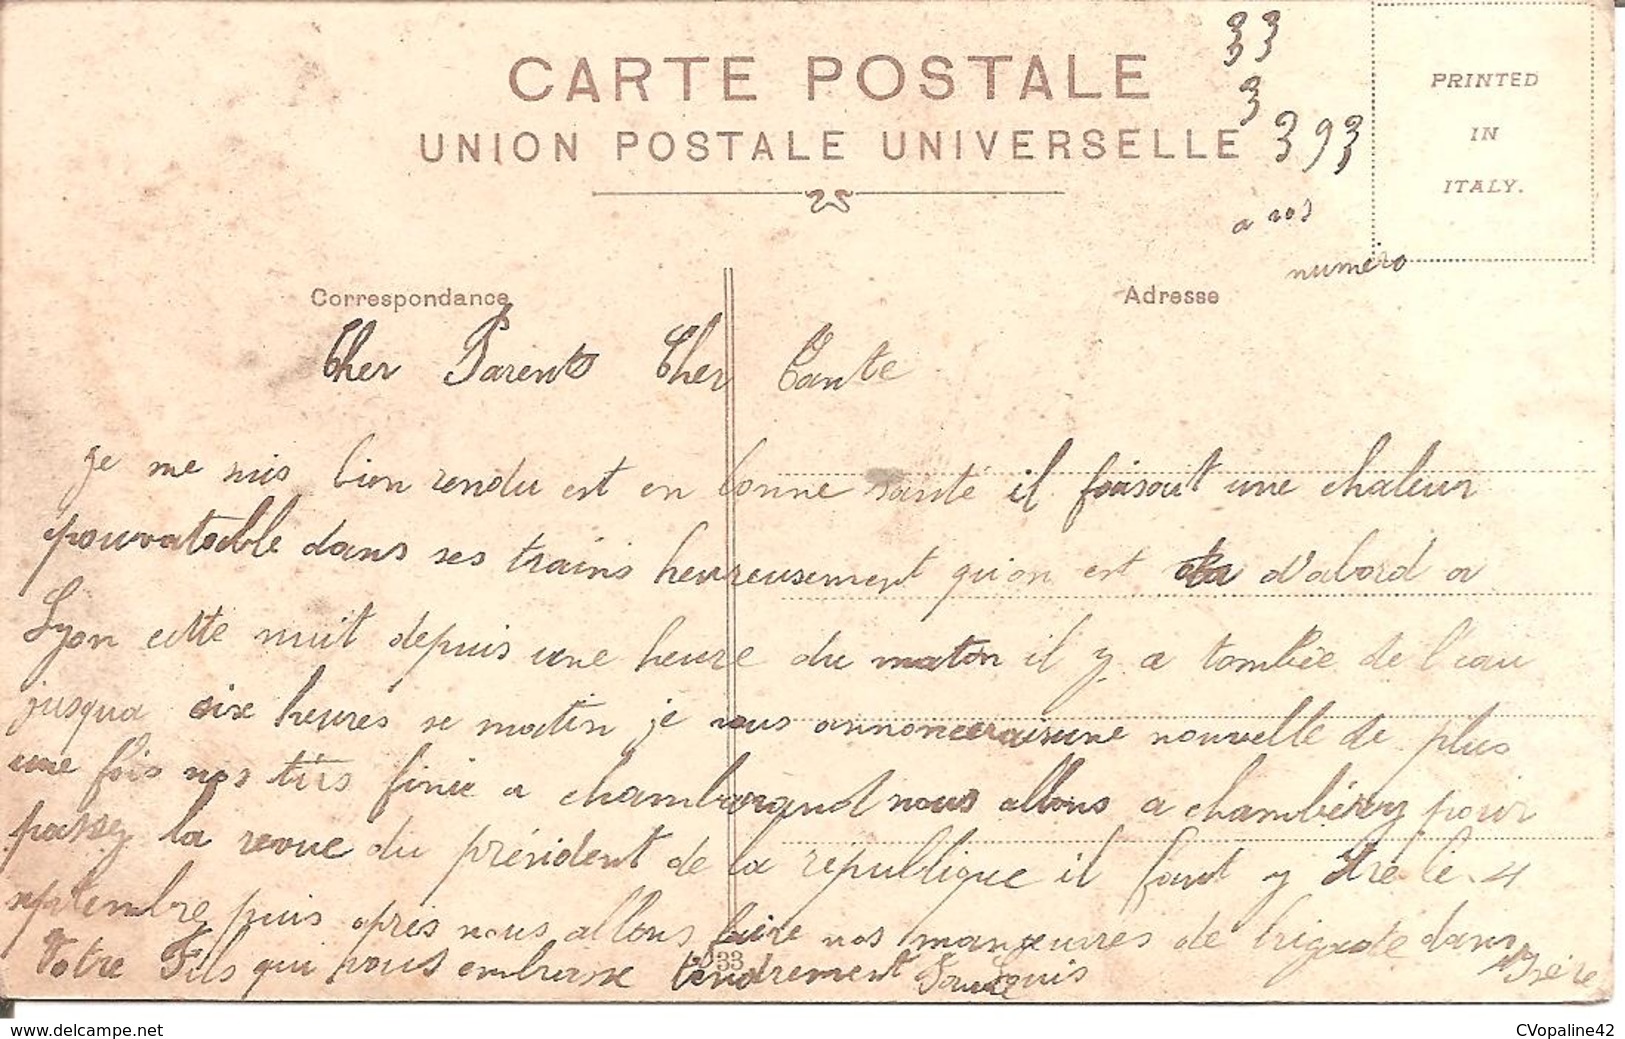 33
CARTE POSTALE
3
UNION POSTALE UNIVERSELLE
393
PRINTED
IN
ITALY.
a nos
numéro
Correspondance
Adresse
Cher Parents Cher Tante
je me suis bien rendu est en bonne santé il faisait une chaleur
dans ses trains heureusement qu'on est d'abord a
Lyon cette nuit depuis une heure du matin il y a tombée de l'eau
jusqua six heures se matin je vous annoncerais une nouvelle de plus
une fois nos tirs finie a chambarand nous allons a chambéry pour
passez la revue du président de la république il faut y être le 4
septembre puis après nous allons faire nos manoeuvres de brigade dans
l'Isère
Votre Fils qui vous embrasse tendrement Louis
33
CVopaline42
www.delcampe.net